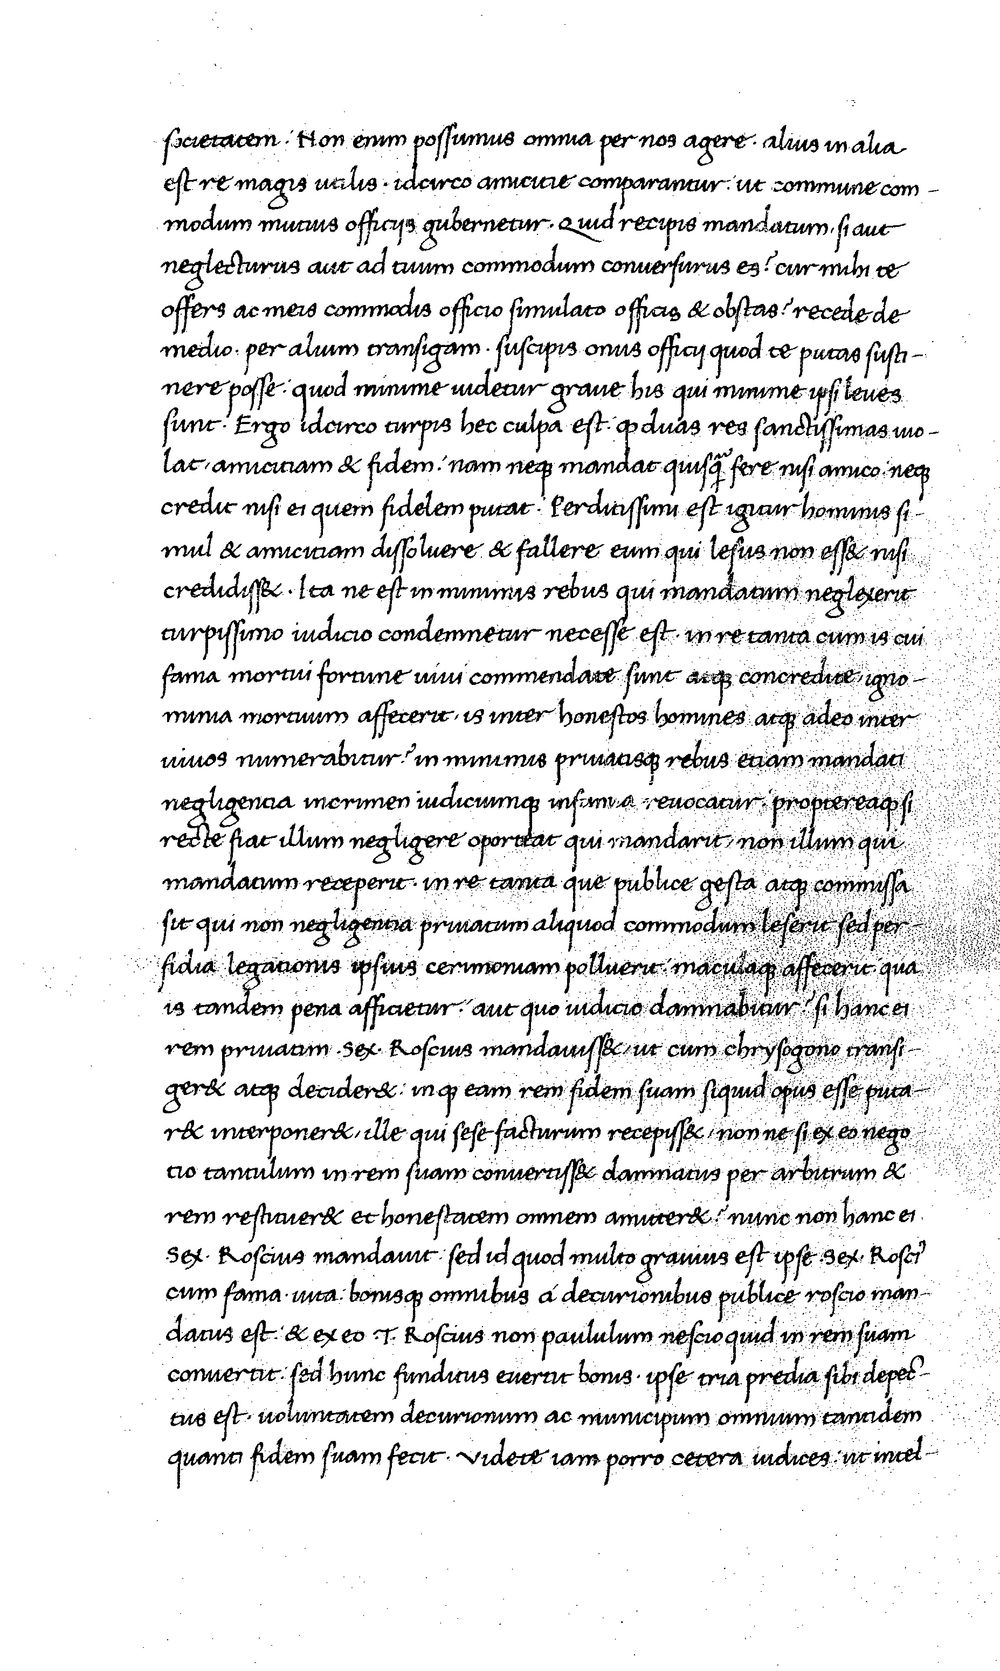 societatem. Non enim possumus omnia per nos agere. alius in alia
est re magis utilis. idcirco amicitie comparantur. ut commune com-
modum mutuis officijs gubernetur. Quid recipis mandatum, si aut
neglecturus aut ad tuum commodum conversurus es? cur mihi te
offers ac meis commodis officio simulato officis & obstas? recede de
medio. per alium transigam. suscipis onus officij quod te putas susti-
nere posse. quod minime uidetur graue his qui minime ipsi leues
sunt. Ergo idcirco turpis hec culpa est. ꝙ duas res sanctissimas uio-
lat, amicitiam & fidem. nam neqꝫ mandat quisqᷓ fere nisi amico. neqꝫ
credit nisi ei quem fidelem putat. Perditissimi est igitur hominis si-
mul & amicitiam dissoluere & fallere eum qui lesus non ess& nisi
credidiss&. Ita ne est in minimis rebus qui mandatum neglexerit
turpissimo iudicio condemnetur necesse est. in re tanta cum is cui
fama mortui fortune uiui commendate sunt atqꝫ concredite, igno-
minia mortuum affecerit, is inter honestos homines atqꝫ adeo inter
uiuos numerabitur? in minimis priuatisqꝫ rebus etiam mandati
negligentia in crimen iudiciumqꝫ infamia reuocatur. propterea ꝙ si
recte fiat illum negligere oporteat qui mandarit, non illum qui
mandatum receperit. in re tanta que publice gesta atqꝫ commissa
sit qui non negligentia priuatum aliquod commodum leserit sed per-
fidia legationis ipsius cerimoniam polluerit. maculaqꝫ affecerit qua
is tandem pena afficietur. aut quo iudicio damnabitur? si hanc ei
rem priuatim Sex. Roscius mandauiss&, ut cum chrysogono transi-
ger& atqꝫ decider&. inqꝫ eam rem fidem suam siquid opus esse puta-
r& interponer&, ille qui sese facturum recepiss&, non ne si ex eo nego
tio tantulum in rem suam conuertiss& damnatus per arbitrum &
rem restituer& et honestatem omnem amitter&? nunc non hanc ei
Sex. Roscius mandauit. sed id quod multo grauius est ipse Sex. Rosci᾽
cum fama. uita. bonisqꝫ omnibus a decurionibus publice roscio man-
datus est. & ex eo T. Roscius non paululum nescio quid in rem suam
conuertit. sed hunc funditus euertit bonis. ipse tria predia sibi depec-
tus est. uoluntatem decurionum ac municipum omnium tantidem
quanti fidem suam fecit. Videte iam porro cetera iudices. ut intel-